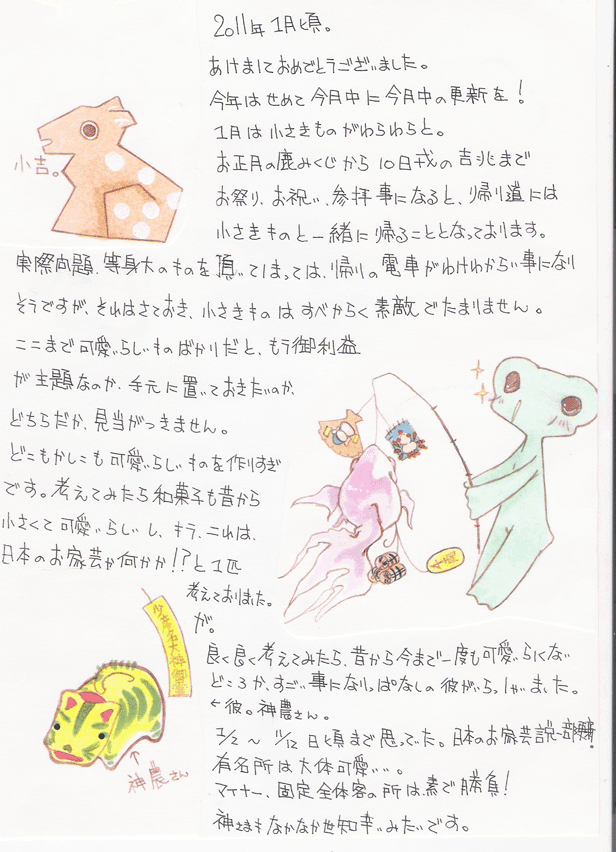 2011年1月頃。
あけましておめでとうございました。
今年はせめて今月中に今月中の更新を！
1月は小さきものがわらわらと。
お正月の鹿みくじから10日戎の吉兆まで
お祭り、お祝い、参拝事になると、帰り道には
小さきものと一緒に帰ることとなっております。
小吉。
実際問題、等身大のものを頂いてしまっては、帰りの電車がわけわからい事になり
そうですが、それはさておき、小さきものはすべからく素敵でたまりません。
ここまで可愛いらしいものばかりだと、もう御利益
が主題なのか、手元に置いておきたいのか、
どちらだか、見当がつきません。
どこもかしこも可愛いらしいものを作りすぎ
です。考えてみたら和菓子も昔から
小さくて可愛いらしいし、キラ、これは、
日本のお家芸か何かか!?と1匹
考えておりました。
が。
少彦名大神御璽
神農さん
良く良く考えてみたら、昔から今まで一度も可愛いらくない
どころか、すごい事になりっぱなしの彼がいらっしゃいました。
←彼。神農さん。
1/2〜11/12日頃まで思ってた。日本のお家芸説一部崩壊！
有名所は大体可愛い。
マイナー、固定全体客の所は素で勝負！
神さまもなかなか世知辛いみたいです。